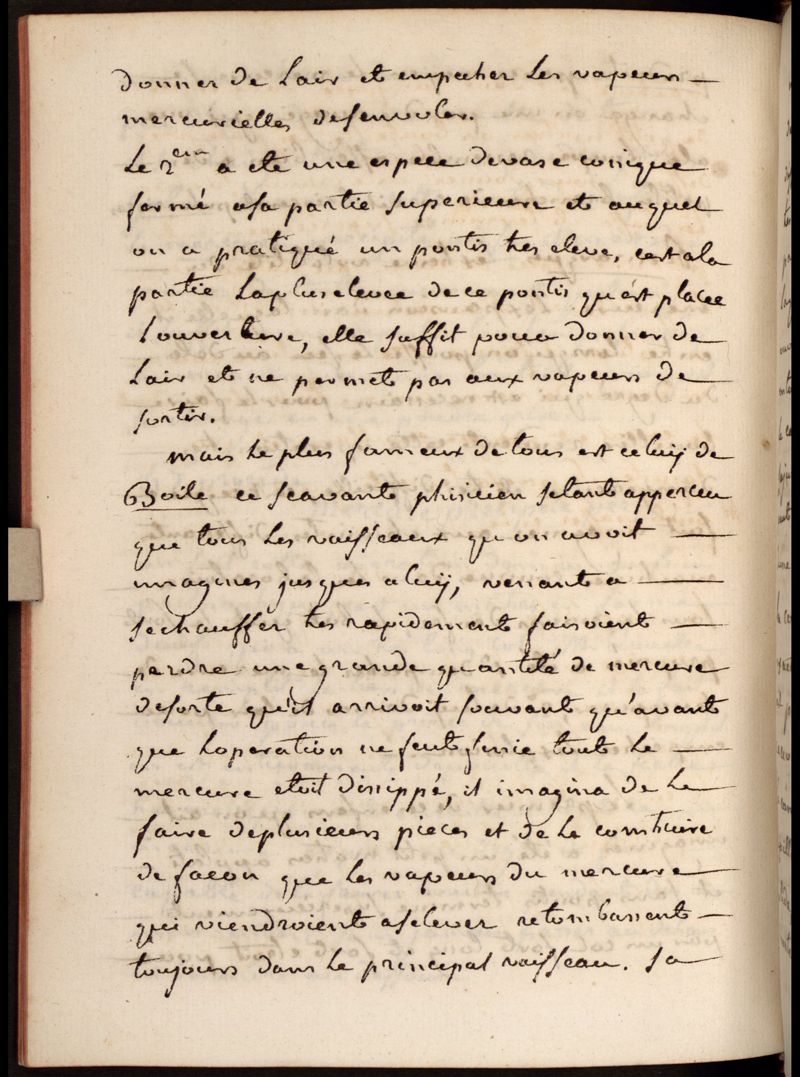 donner de Lair et empecher Les vapeurs —
mercurielles desenvoler.
Le 2eme a eté une espece devase conique
formé asa partie superieure et auquel
on a pratiqué un pontis tres elevé, cest ala
partie Laplus elevée de ce pontis qu'est placée
Louverture, elle suffit pour donner de
Lair et ne permet pas aux vapeurs de —
sortir.
mais Le plus fameux de tous est celuy de
Boile ce scavant phisicien setant apperceu
que tous Les vaisseaux qu'on avoit —
imaginés jusques aluy, venant a —
sechauffer tres rapidement faisoient —
perdre une grande quantité de mercure
desorte qu'il arrivoit souvant qu'avant
que Loperation ne fut finie tout Le —
mercure etoit dissippé, il imagina de Le
faire deplusieurs pieces et de Le construire
de facon que Les vapeurs du mercure —
qui viendroient aselever retombassent —
toujours dans Le principal vaisseau. Sa